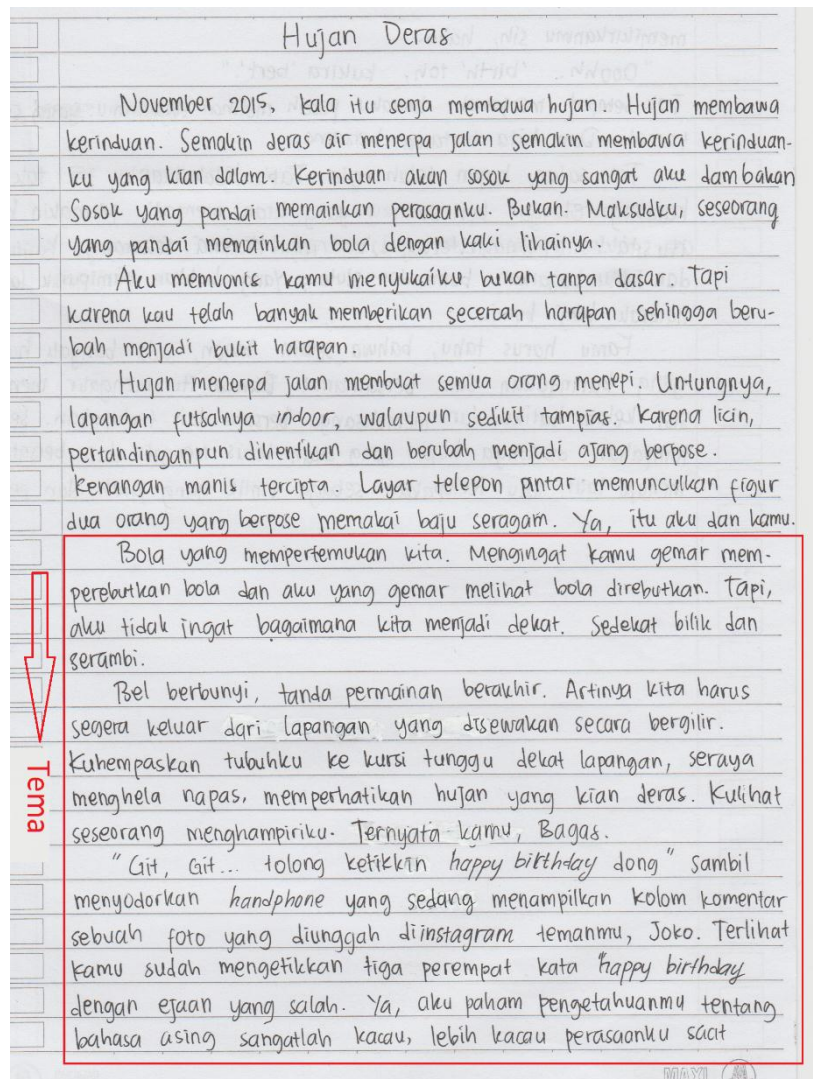 Hujan Deras
November 2015, kala itu senja membawa hujan. Hujan membawa
kerinduan. Semakin deras air menerpa jalan semakin membawa kerinduan-
ku yang kian dalam. Kerinduan akan sosok yang sangat aku dambakan
Sosok yang pandai memainkan perasaanku. Bukan. Maksudku, seseorang
yang pandai memainkan bola dengan kaki lihainya.
Aku memvonis kamu menyukaiku bukan tanpa dasar Tapi
karena kau telah banyak memberikan secercah harapan sehingga beru-
bah menjadi bukit harapan.
Hujan menerpa jalan membuat semua orang menepi. Untungnya,
lapangan futsalnya indoor, walaupun sedikit tampias. Karena licin,
pertandinganpun dihentikan dan berubah menjadi ajang berpose.
Kenangan manis tercipta. Layar telepon pintar memunculkan figur
dua orang yang berpose memakai baju seragam. Ya, itu aku dan kamu.
Bola yang mempertemukan kita. Mengingat kamu gemar mem-
perebutkan bola dan aku yang gemar melihat bola direbutkan. Tapi,
aku tidak ingat bagaimana kita menjadi dekat. Sedekat bilik dan
serambi.
Bel berbunyi, tanda permainan berakhir. Artinya kita harus
segera keluar dari lapangan yang disewakan secara bergilir.
Kuhempaskan tubuhku ke kursi tunggu dekat lapangan, seraya
menghela napas, memperhatikan hujan yang kian deras. Kulihat
seseorang menghampiriku. Ternyata kamu, Bagas.
"Git, Git... tolong ketikkin happy birthday dong" sambil
menyodorkan handphone yang sedang menampilkan kolom komentar
sebuah foto yang diunggah diinstagram temanmu, Joko. Terlihat
kamu sudah mengetikkan tiga perempat kata happy birthday
dengan ejaan yang salah. Ya, aku paham pengetahuanmu tentang
bahasa asing sangatlah kacau, lebih kacau perasaanku saat
Tema